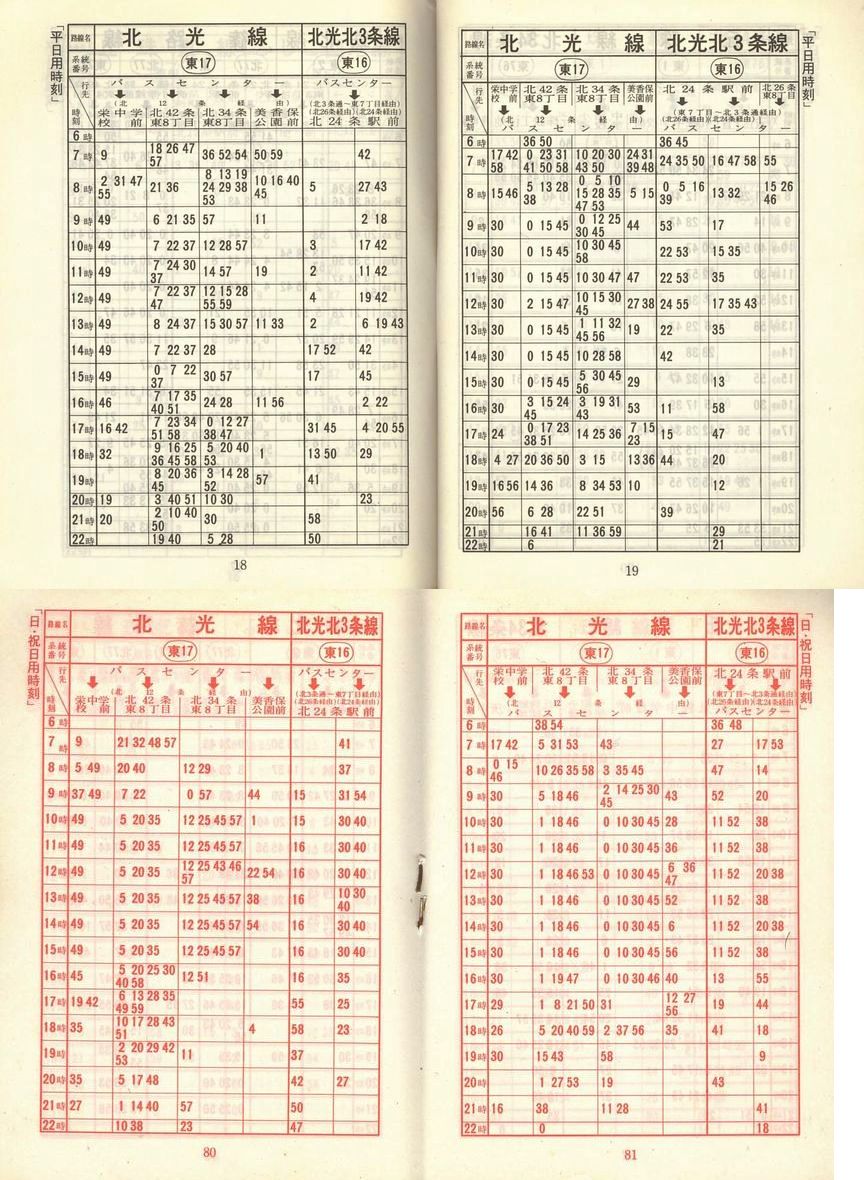 「平日用時刻」
路線名 北光線 北光北3条線
系統番号 東17 東16
行先 バスセンター バスセンター
時刻 (北12条経由) (北3条通〜東7丁目経由)
(北26条経由)(北24条経由)
栄中学校前 北42条東8丁目 北34条東8丁目 美香保公園前 北24条駅前
6時
7時 9 18 26 47 57 36 52 54 50 59 42
8時 2 31 47 55 21 36 8 13 19 24 29 38 53 10 16 40 45 5 27 43
9時 49 6 21 35 57 11 2 18
10時 49 7 22 37 12 28 57 3 17 42
11時 49 7 24 30 37 14 57 19 2 11 42
12時 49 7 22 37 47 12 15 28 55 59 4 19 42
13時 49 8 24 37 15 30 57 11 33 2 6 19 43
14時 49 7 22 37 28 17 52 42
15時 49 0 7 22 37 30 57 17 45
16時 46 7 17 35 40 51 24 28 11 56 2 22
17時 16 42 7 23 34 51 58 0 12 27 38 47 31 45 4 20 55
18時 32 9 16 25 36 45 58 5 20 40 53 1 13 50 29
19時 8 20 36 45 3 14 28 52 57 41
20時 19 3 40 51 10 30 23
21時 20 2 10 40 50 30 58
22時 19 40 5 28 50
18
「平日用時刻」
路線名 北光線 北光北3条線
系統番号 東17 東16
行先 栄中学校前 北42条東8丁目 北34条東8丁目 美香保公園前 北24条駅前 北26条東8丁目
時刻 (北12条経由) (東7丁目〜北3条通経由)
(北26条経由)(北24条経由)
バスセンター バスセンター
6時 36 50 36 45
7時 17 42 58 0 23 31 41 50 58 10 20 30 43 50 24 31 39 48 24 35 50 16 47 58 55
8時 15 46 5 13 28 38 0 5 10 15 28 35 47 53 5 15 0 5 16 39 13 32 15 26 46
9時 30 0 15 45 0 12 25 30 45 44 53 17
10時 30 0 15 45 10 30 45 58 22 53 15 35
11時 30 0 15 45 10 30 47 47 22 53 35
12時 30 2 15 47 10 15 30 45 27 38 24 55 17 35 43
13時 30 0 15 45 1 11 32 45 56 19 22 35
14時 30 0 15 45 10 28 58 42
15時 30 0 15 45 5 30 45 56 29 13
16時 30 3 15 24 45 3 19 31 43 53 11 58
17時 24 0 17 23 38 51 14 25 36 7 15 23 15 47
18時 4 27 20 36 50 3 15 13 36 44 20
19時 16 56 14 36 8 34 53 10 12
20時 56 6 28 22 51 39
21時 16 41 11 36 59 29
22時 6 21
19
「日・祝日用時刻」
路線名 北光線 北光北3条線
系統番号 東17 東16
行先 バスセンター バスセンター
時刻 (北12条経由) (北3条通〜東7丁目経由)
(北26条経由)(北24条経由)
栄中学校前 北42条東8丁目 北34条東8丁目 美香保公園前 北24条駅前
6時
7時 9 21 32 48 57 41
8時 5 49 20 40 12 29 37
9時 37 49 7 22 0 57 44 15 31 54
10時 49 5 20 35 12 25 45 57 1 15 30 40
11時 49 5 20 35 12 25 45 57 16 30 40
12時 49 5 20 35 12 25 43 46 57 22 54 16 30 40
13時 49 5 20 35 12 25 45 57 38 16 10 30 40
14時 49 5 20 35 12 25 45 57 54 16 30 40
15時 49 5 20 35 12 25 45 57 16 30 40
16時 45 5 20 25 30 40 58 12 51 16 35
17時 19 42 6 13 28 35 49 59 55 25
18時 35 10 17 28 43 51 4 58 23
19時 2 20 29 42 53 11 37
20時 35 5 17 48 42 27
21時 27 1 14 40 57 50
22時 10 38 23 47
80
「日・祝日用時刻」
路線名 北光線 北光北3条線
系統番号 東17 東16
行先 栄中学校前 北42条東8丁目 北34条東8丁目 美香保公園前 北24条駅前
時刻 (北12条経由) (東7丁目〜北3条通経由)
(北26条経由)(北24条経由)
バスセンター バスセンター
6時 38 54 36 48
7時 17 42 5 31 53 43 27 17 53
8時 0 15 46 10 26 35 58 3 35 45 47 14
9時 30 5 18 46 2 14 25 30 45 43 52 20
10時 30 1 18 46 0 10 30 45 28 11 52 38
11時 30 1 18 46 0 10 30 45 36 11 52 38
12時 30 1 18 46 53 0 10 30 45 6 36 47 11 52 20 38
13時 30 1 18 46 0 10 30 45 52 11 52 38
14時 30 1 18 46 0 10 30 45 6 11 52 20 38
15時 30 1 18 46 0 10 30 45 56 11 52 38
16時 30 1 19 47 0 10 30 46 40 13 55
17時 29 1 8 21 50 31 12 27 56 19 44
18時 26 5 20 40 59 2 37 56 35 41 18
19時 30 15 43 58 9
20時 1 27 53 19 43
21時 16 38 11 28 41
22時 0 18
81